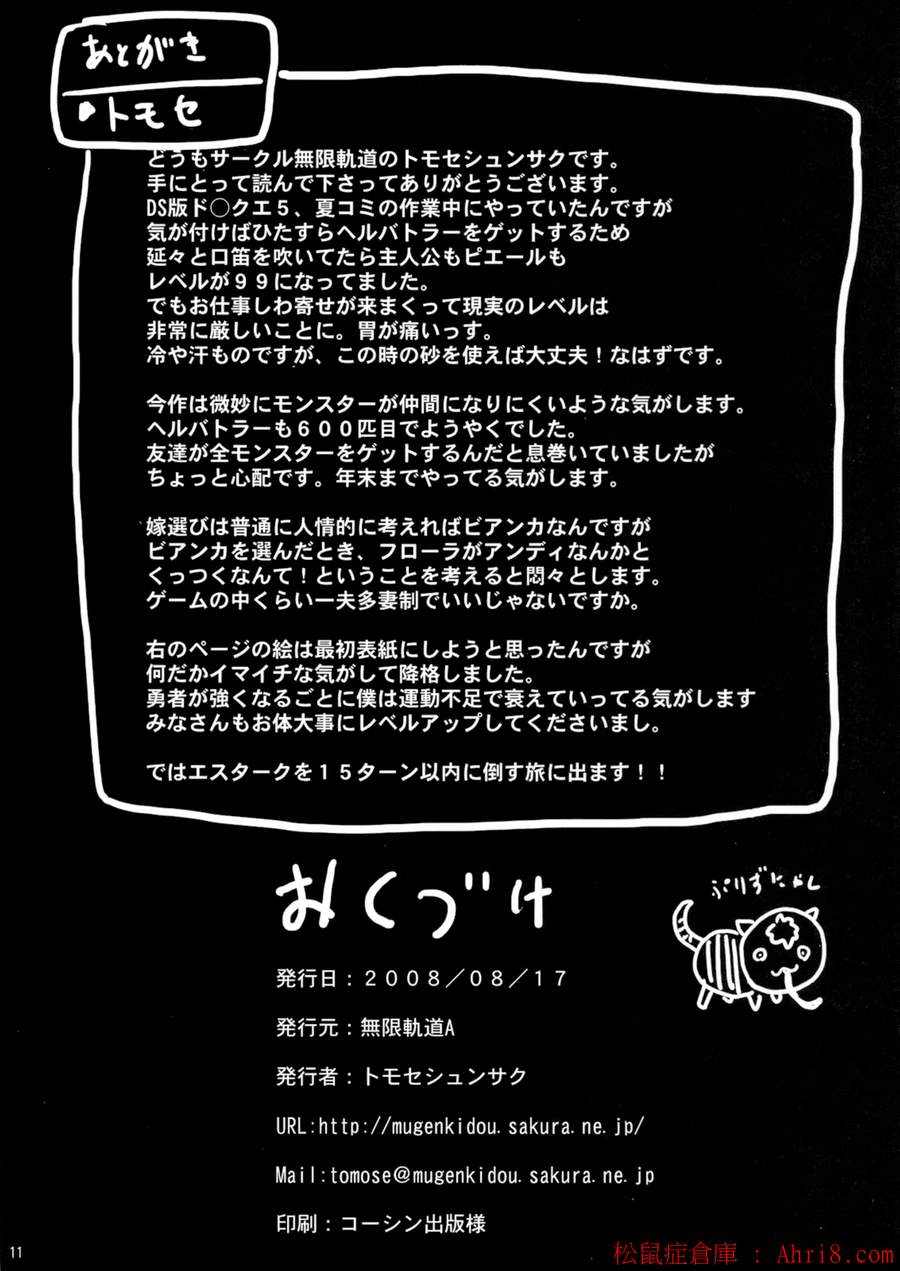 あとがき
・トモセ
どうもサークル無限軌道のトモセシュンサクです。
手にとって読んで下さってありがとうございます。
DS版ド○クエ５、夏コミの作業中にやっていたんですが
気が付けばひたすらヘルバトラーをゲットするため
延々と口笛を吹いてたら主人公もピエールも
レベルが９９になってました。
でもお仕事しわ寄せが来まくって現実のレベルは
非常に厳しいことに。胃が痛いっす。
冷や汗ものですが、この時の砂を使えば大丈夫！なはずです。
今作は微妙にモンスターが仲間になりにくいような気がします。
ヘルバトラーも６００匹目でようやくでした。
友達が全モンスターをゲットするんだと息巻いていましたが
ちょっと心配です。年末までやってる気がします。
嫁選びは普通に人情的に考えればビアンカなんですが
ビアンカを選んだとき、フローラがアンディなんかと
くっつくなんて！ということを考えると悶々とします。
ゲームの中くらい一夫多妻制でいいじゃないですか。
右のページの絵は最初表紙にしようと思ったんですが
何だかイマイチな気がして降格しました。
勇者が強くなるごとに僕は運動不足で衰えていってる気がします
みなさんもお体大事にレベルアップしてくださいまし。
ではエスタークを１５ターン以内に倒す旅に出ます！！
おくづけ
ぷりずにゃん
発行日：２００８／０８／１７
発行元：無限軌道A
発行者：トモセシュンサク
URL:http://mugenkidou.sakura.ne.jp/
Mail:tomose@mugenkidou.sakura.ne.jp
印刷：コーシン出版様
11
松鼠症倉庫 : Ahri8.com